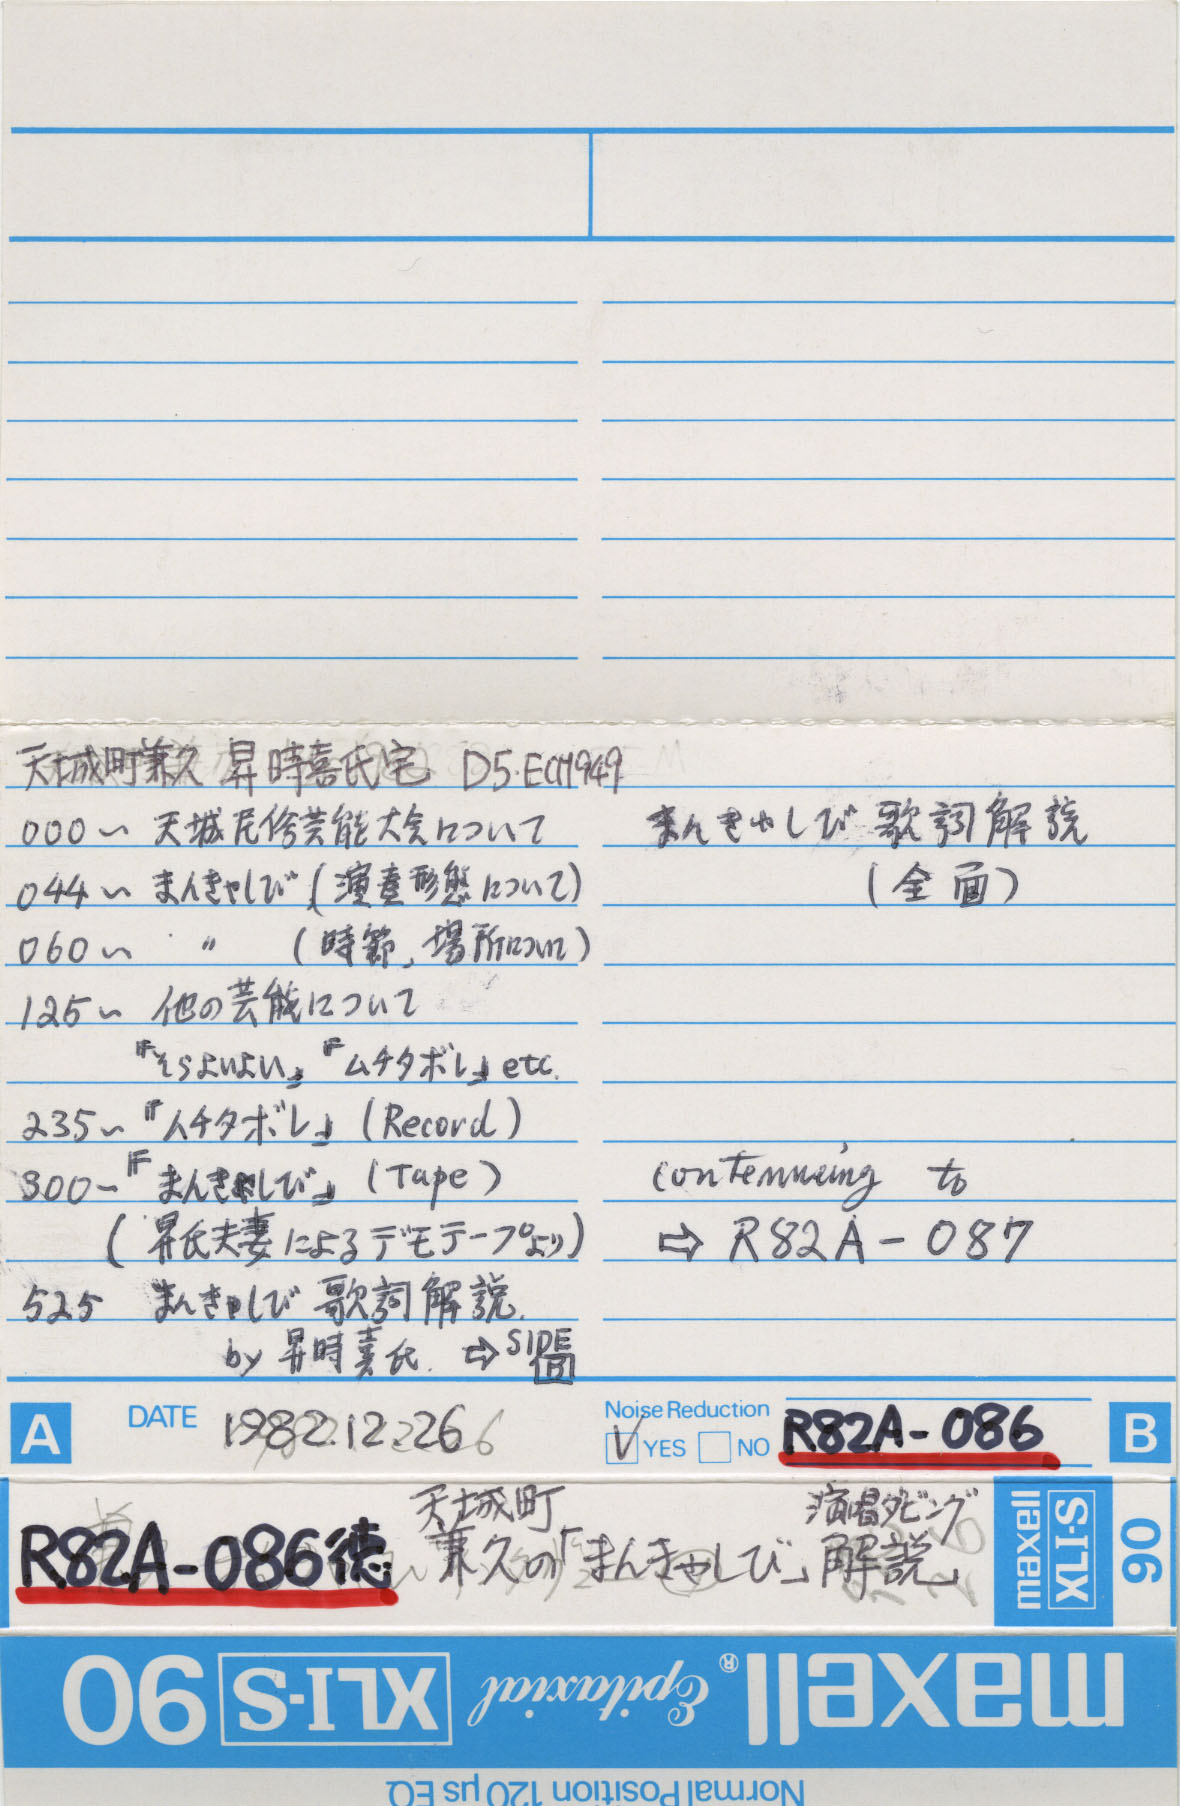 天城町兼久 昇時喜氏宅 D5・ECM949
000〜 天城民俗芸能大会について
044〜 まんきゃしび(演奏形態について)
060〜 〃 (時節、場所について)
125〜 他の芸能について
『そらよいよい』『ムチタボレ』etc.
235〜『ムチタボレ』(Record)
300〜『まんきゃしび』(Tape)
(昇氏夫妻によるデモテープより)
525 まんきゃしび 歌詞解説.
by 昇時喜氏. ⇨ SIDE B
まんきゃしび 歌詞解説
(全面)
contenueing to
⇨ R82A-087
A DATE 1982.12.26
Noise Reduction
V YES NO R82A-086 B
R82A-086徳
天城町
兼久の「まんきゃしび」解説
演唱ダビング
maxell
XLI-S
90
maxell® Epitaxial XLI-S 90
Normal Position 120 μs EQ